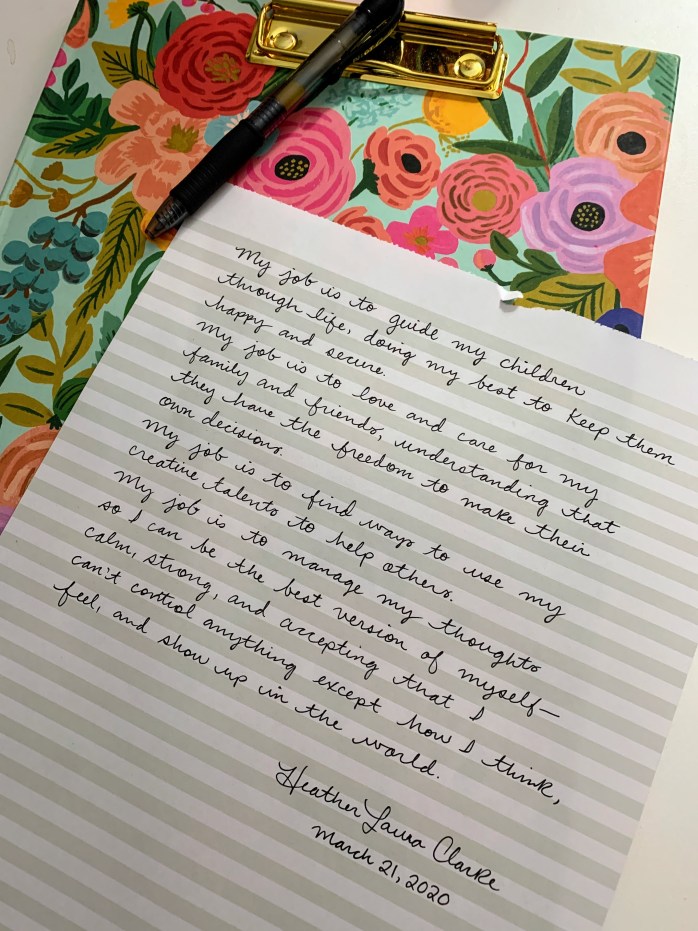 My job is to guide my children
through life, doing my best to keep them
happy and secure.
My job is to love and care for my
family and friends, understanding that
they have the freedom to make their
own decisions.
My job is to find ways to use my
creative talents to help others.
My job is to manage my thoughts
so I can be the best version of myself—
calm, strong, and accepting that I
can't control anything except how I think,
feel, and show up in the world.
Heather Laura Clarke
March 21, 2020